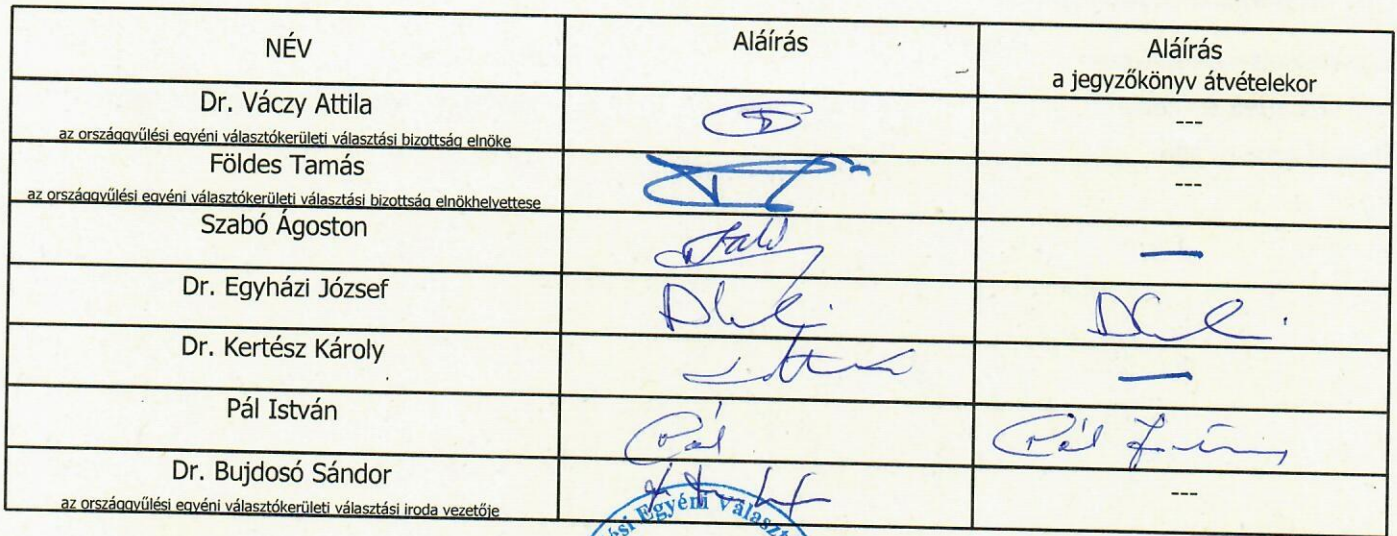 NÉV
Aláírás
Aláírás
a jegyzőkönyv átvételekor
Dr. Váczy Attila
az országgyűlési egyéni választókerületi választási bizottság elnöke
---
Földes Tamás
az országgyűlési egyéni választókerületi választási bizottság elnökhelyettese
---
Szabó Ágoston
Dr. Egyházi József
Dr. Kertész Károly
Pál István
Pál
Pál István
Dr. Bujdosó Sándor
az országgyűlési egyéni választókerületi választási iroda vezetője
---
EgyéniVálaszt